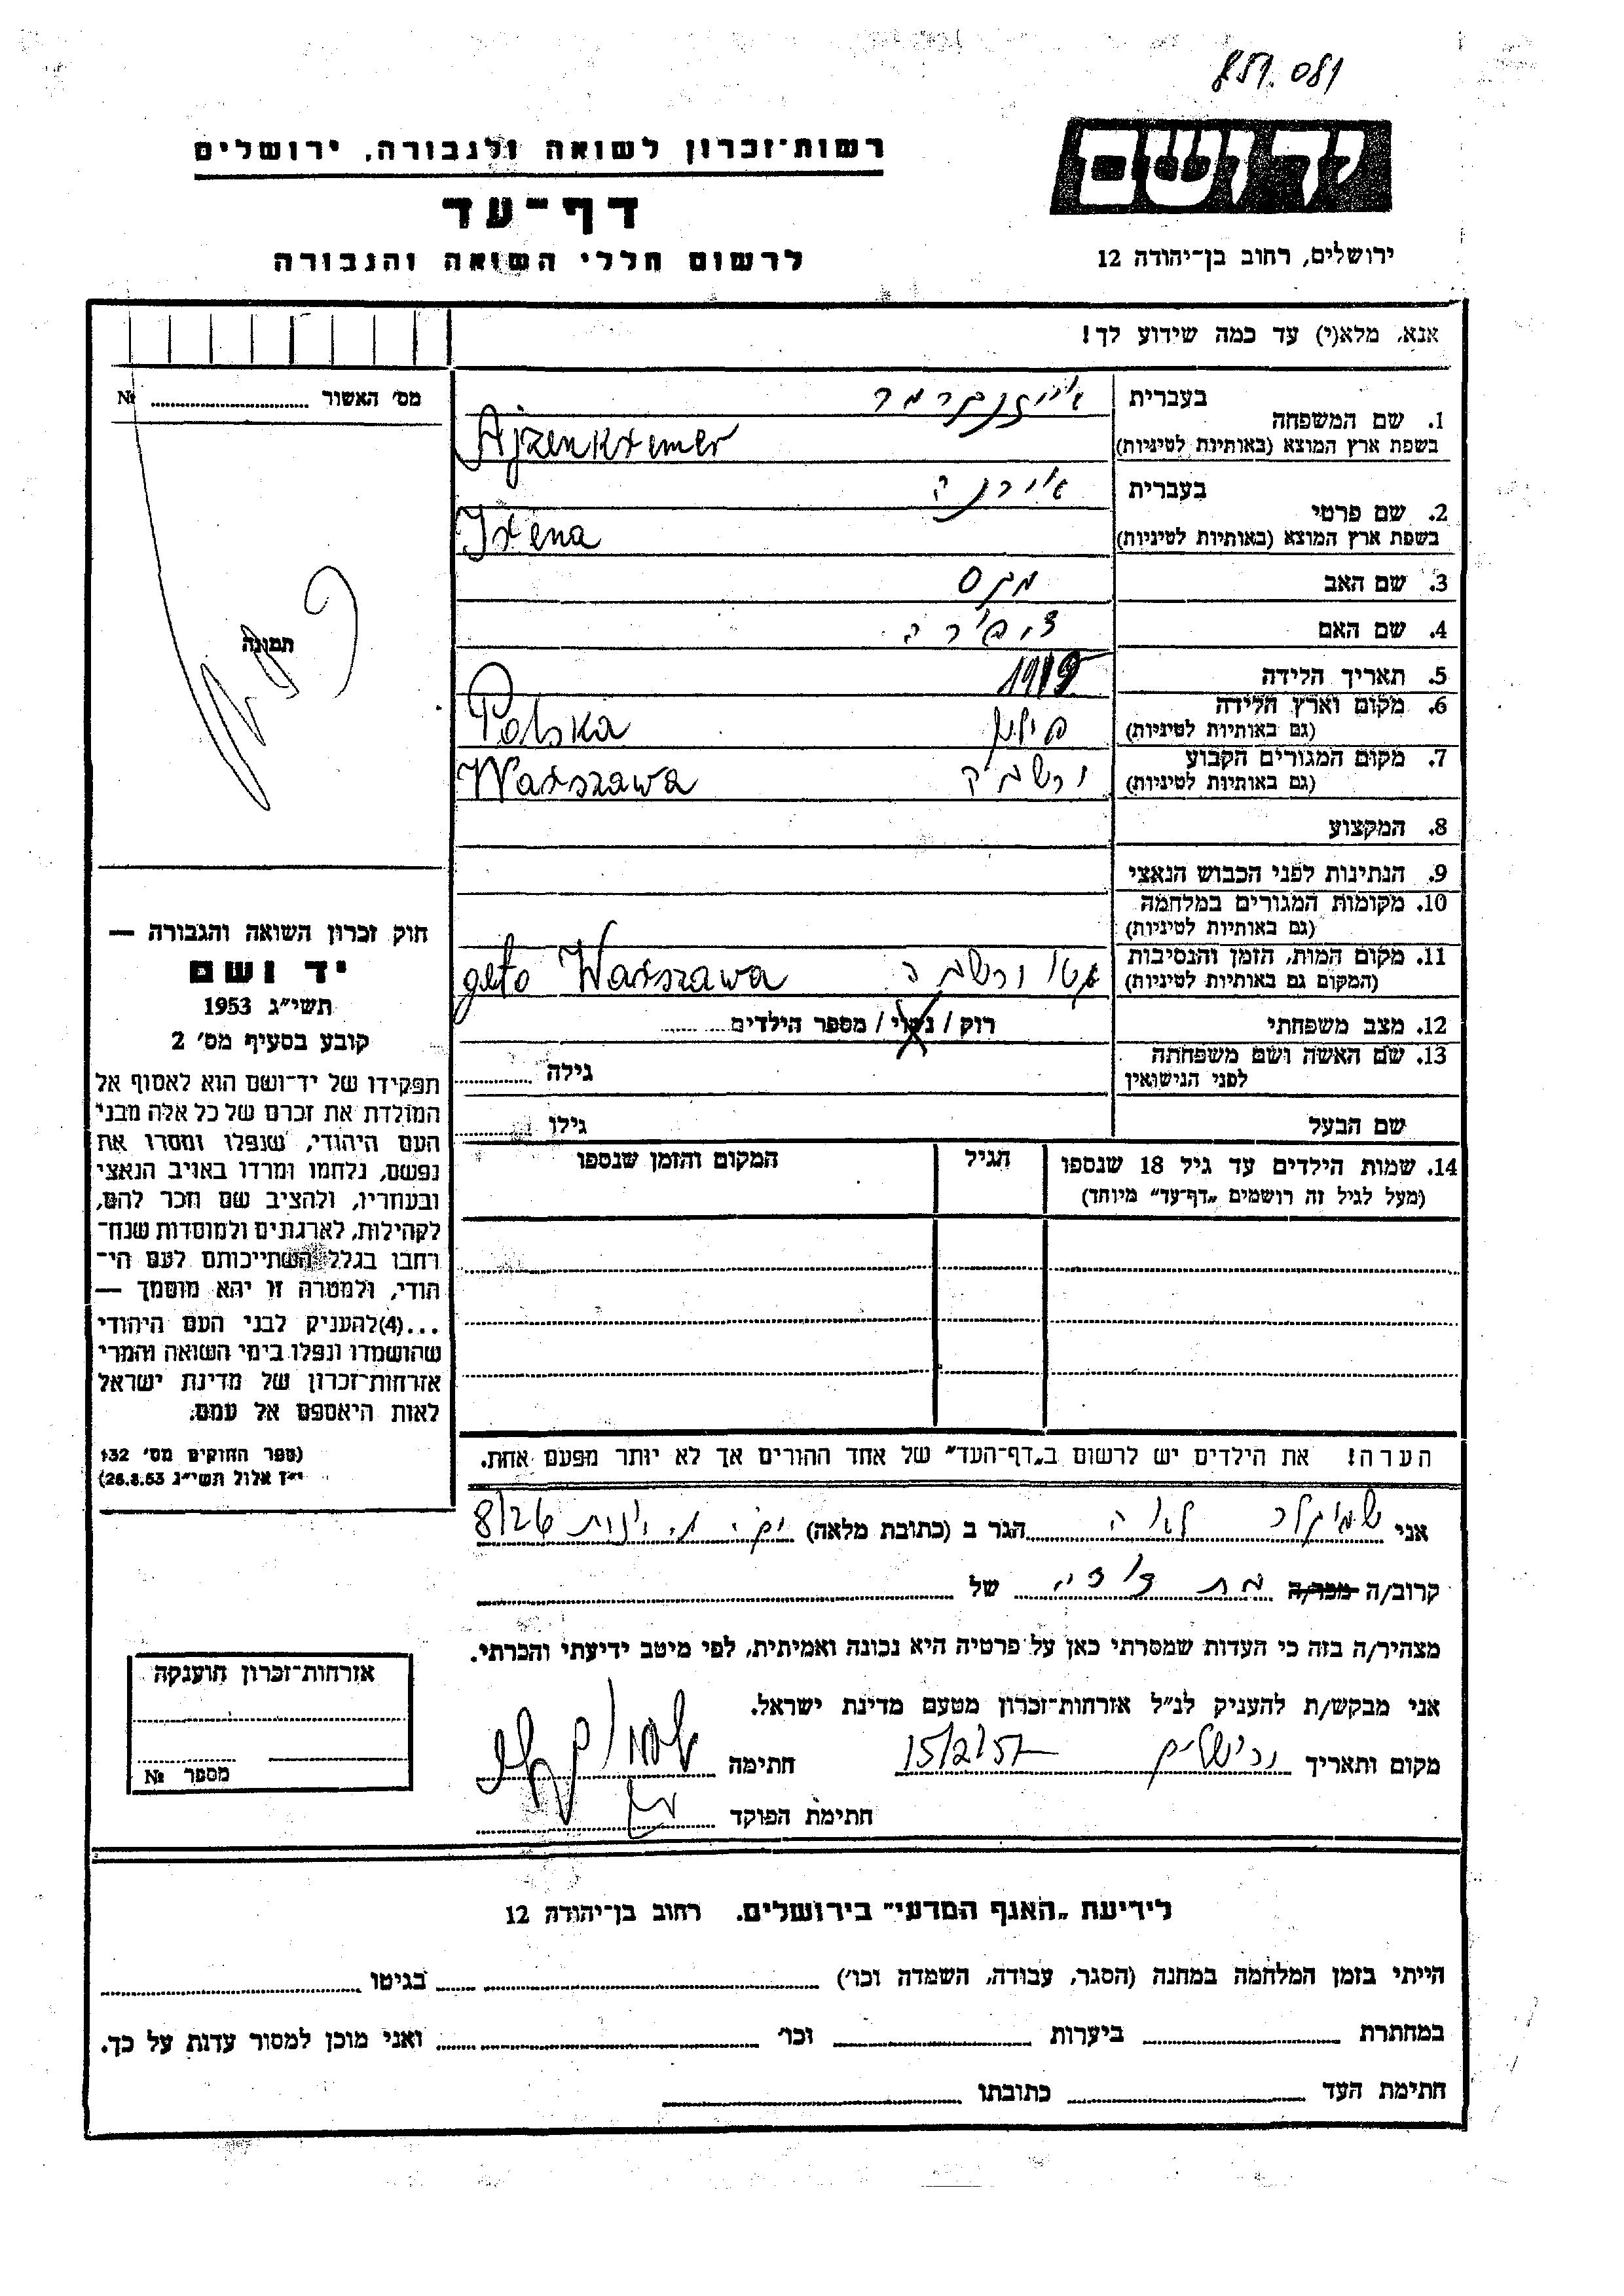 יד ושם
ירושלים, רחוב בן־יהודה 12
רשות־זכרון לשואה ולגבורה, ירושלים
דף־עד
לרשום חללי השואה והגבורה
אנא, מלא(י) עד כמה שידוע לך!
מס׳ האשור № 
תמונה
1. שם המשפחה בעברית אייזנקרמר
בשפת ארץ המוצא (באותיות לטיניות) Ajzenkremer
2. שם פרטי בעברית אירנה
בשפת ארץ המוצא (באותיות לטיניות) Irena
3. שם האב מקס
4. שם האם
5. תאריך הלידה 1919
6. מקום וארץ הלידה פולין
(גם באותיות לטיניות) Polska
7. מקום המגורים הקבוע ורשבה
(גם באותיות לטיניות) Warszawa
8. המקצוע
9. הנתינות לפני הכבוש הנאצי
10. מקומות המגורים במלחמה
(גם באותיות לטיניות)
11. מקום המות, הזמן והנסיבות גטו ורשבה
(המקום גם באותיות לטיניות) geto Warszawa
12. מצב משפחתי רוק / נשוי / מספר הילדים
13. שם האשה ושם משפחתה
לפני הנישואין גילה
שם הבעל גילו
14. שמות הילדים עד גיל 18 שנספו הגיל המקום והזמן שנספו
(מעל לגיל זה רושמים „דף־עד״ מיוחד)
הערה! את הילדים יש לרשום ב„דף־העד״ של אחד ההורים אך לא יותר מפעם אחת.
חוק זכרון השואה והגבורה —
יד ושם
תשי״ג 1953
קובע בסעיף מס׳ 2
תפקידו של יד־ושם הוא לאסוף אל
המולדת את זכרם של כל אלה מבני
העם היהודי, שנפלו ומסרו את
נפשם, נלחמו ומרדו באויב הנאצי
ובעוזריו, ולהציב שם וזכר להם,
לקהילות, לארגונים ולמוסדות שנח־
רבו בגלל השתייכותם לעם הי־
הודי, ולמטרה זו יהא מוסמך —
...(4) להעניק לבני העם היהודי
שהושמדו ונפלו בימי השואה והמרי
אזרחות־זכרון של מדינת ישראל
לאות היאספם אל עמם.
(ספר החוקים מס׳ 132
י״ז אלול תשי״ג 28.8.53)
אני לאה הגר ב (כתובת מלאה) 8/26
קרוב/ה מכר/ה בת דודה של
מצהיר/ה בזה כי העדות שמסרתי כאן על פרטיה היא נכונה ואמיתית, לפי מיטב ידיעתי והכרתי.
אני מבקש/ת להעניק לנ״ל אזרחות־זכרון מטעם מדינת ישראל.
מקום ותאריך ירושלים 15/2/57 חתימה
חתימת הפוקד
אזרחות־זכרון הוענקה
מספר №
לידיעת „האגף המדעי״ בירושלים, רחוב בן־יהודה 12
הייתי בזמן המלחמה במחנה (הסגר, עבודה, השמדה וכו׳) בגיטו
במחתרת ביערות וכו׳ ואני מוכן למסור עדות על כך.
חתימת העד כתובתו